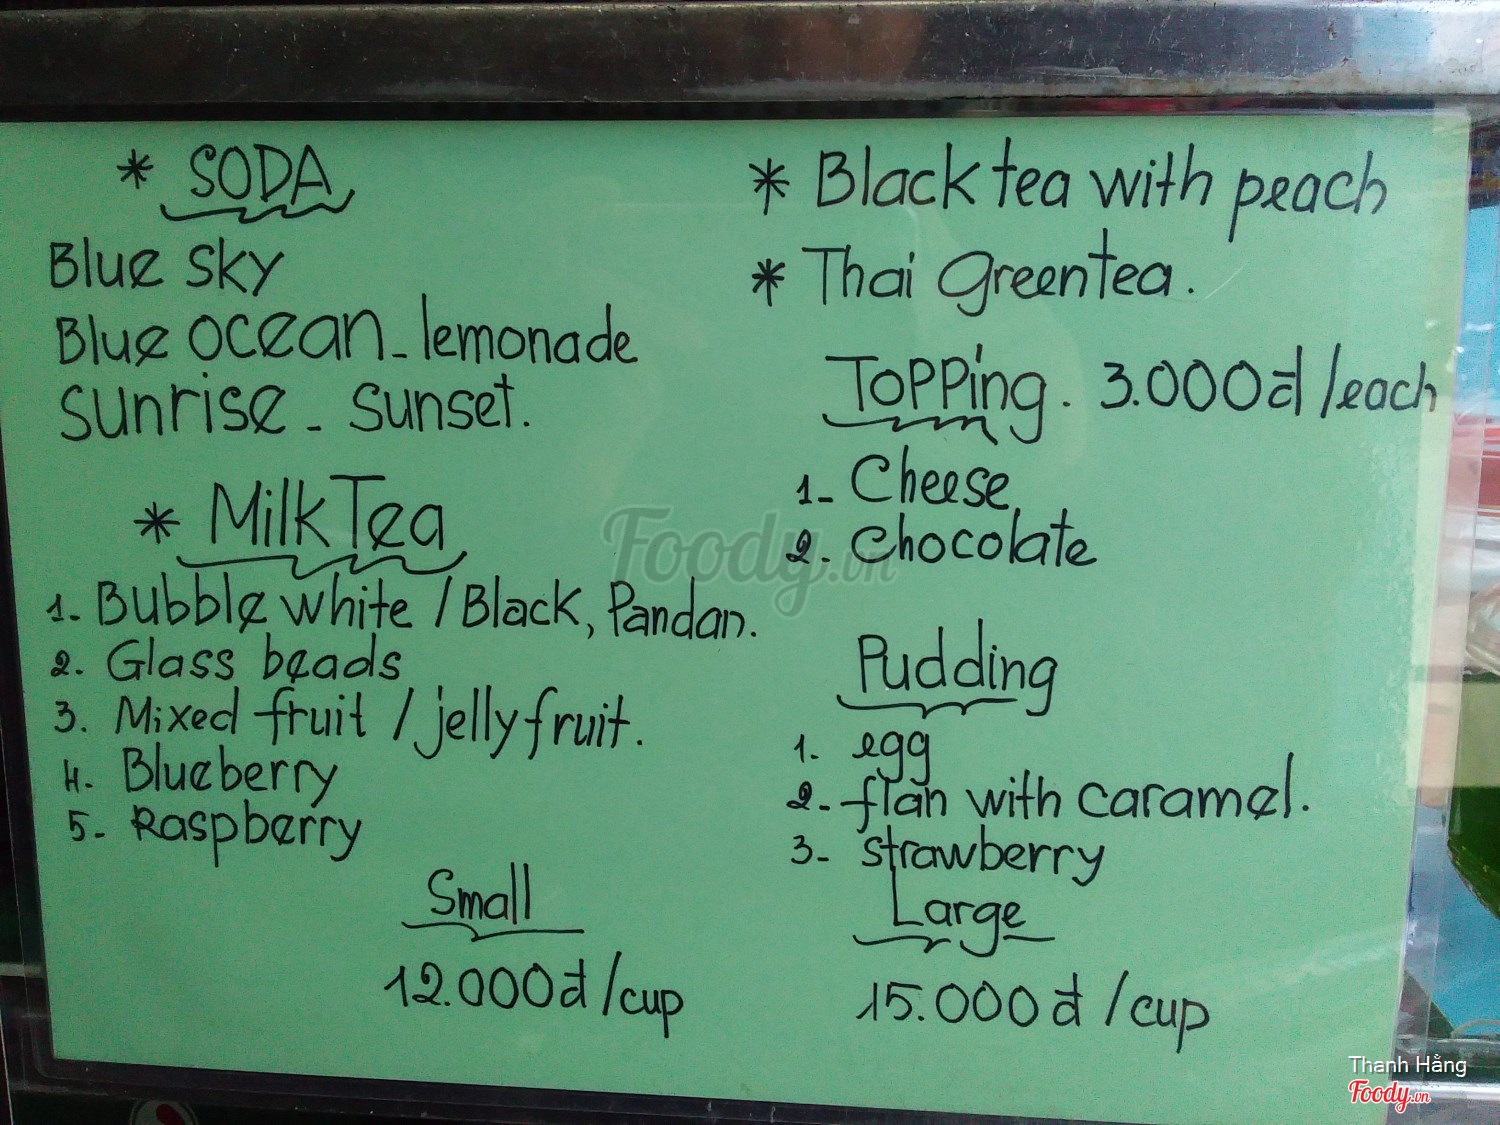 * SODA
Blue sky
Blue ocean - lemonade
Sunrise - Sunset.
* Milk Tea
1- Bubble white / Black, Pandan.
2. Glass beads
3. Mixed fruit / jelly fruit.
4. Blueberry
5- Raspberry
Small
12.000đ/cup
* Black tea with peach
* Thai Green tea.
Topping. 3.000đ/each
1- Cheese
2. Chocolate
Pudding
1. egg
2- flan with caramel.
3- strawberry
Large
15.000đ/cup
Foody.vn
Thanh Hằng
Foody.vn